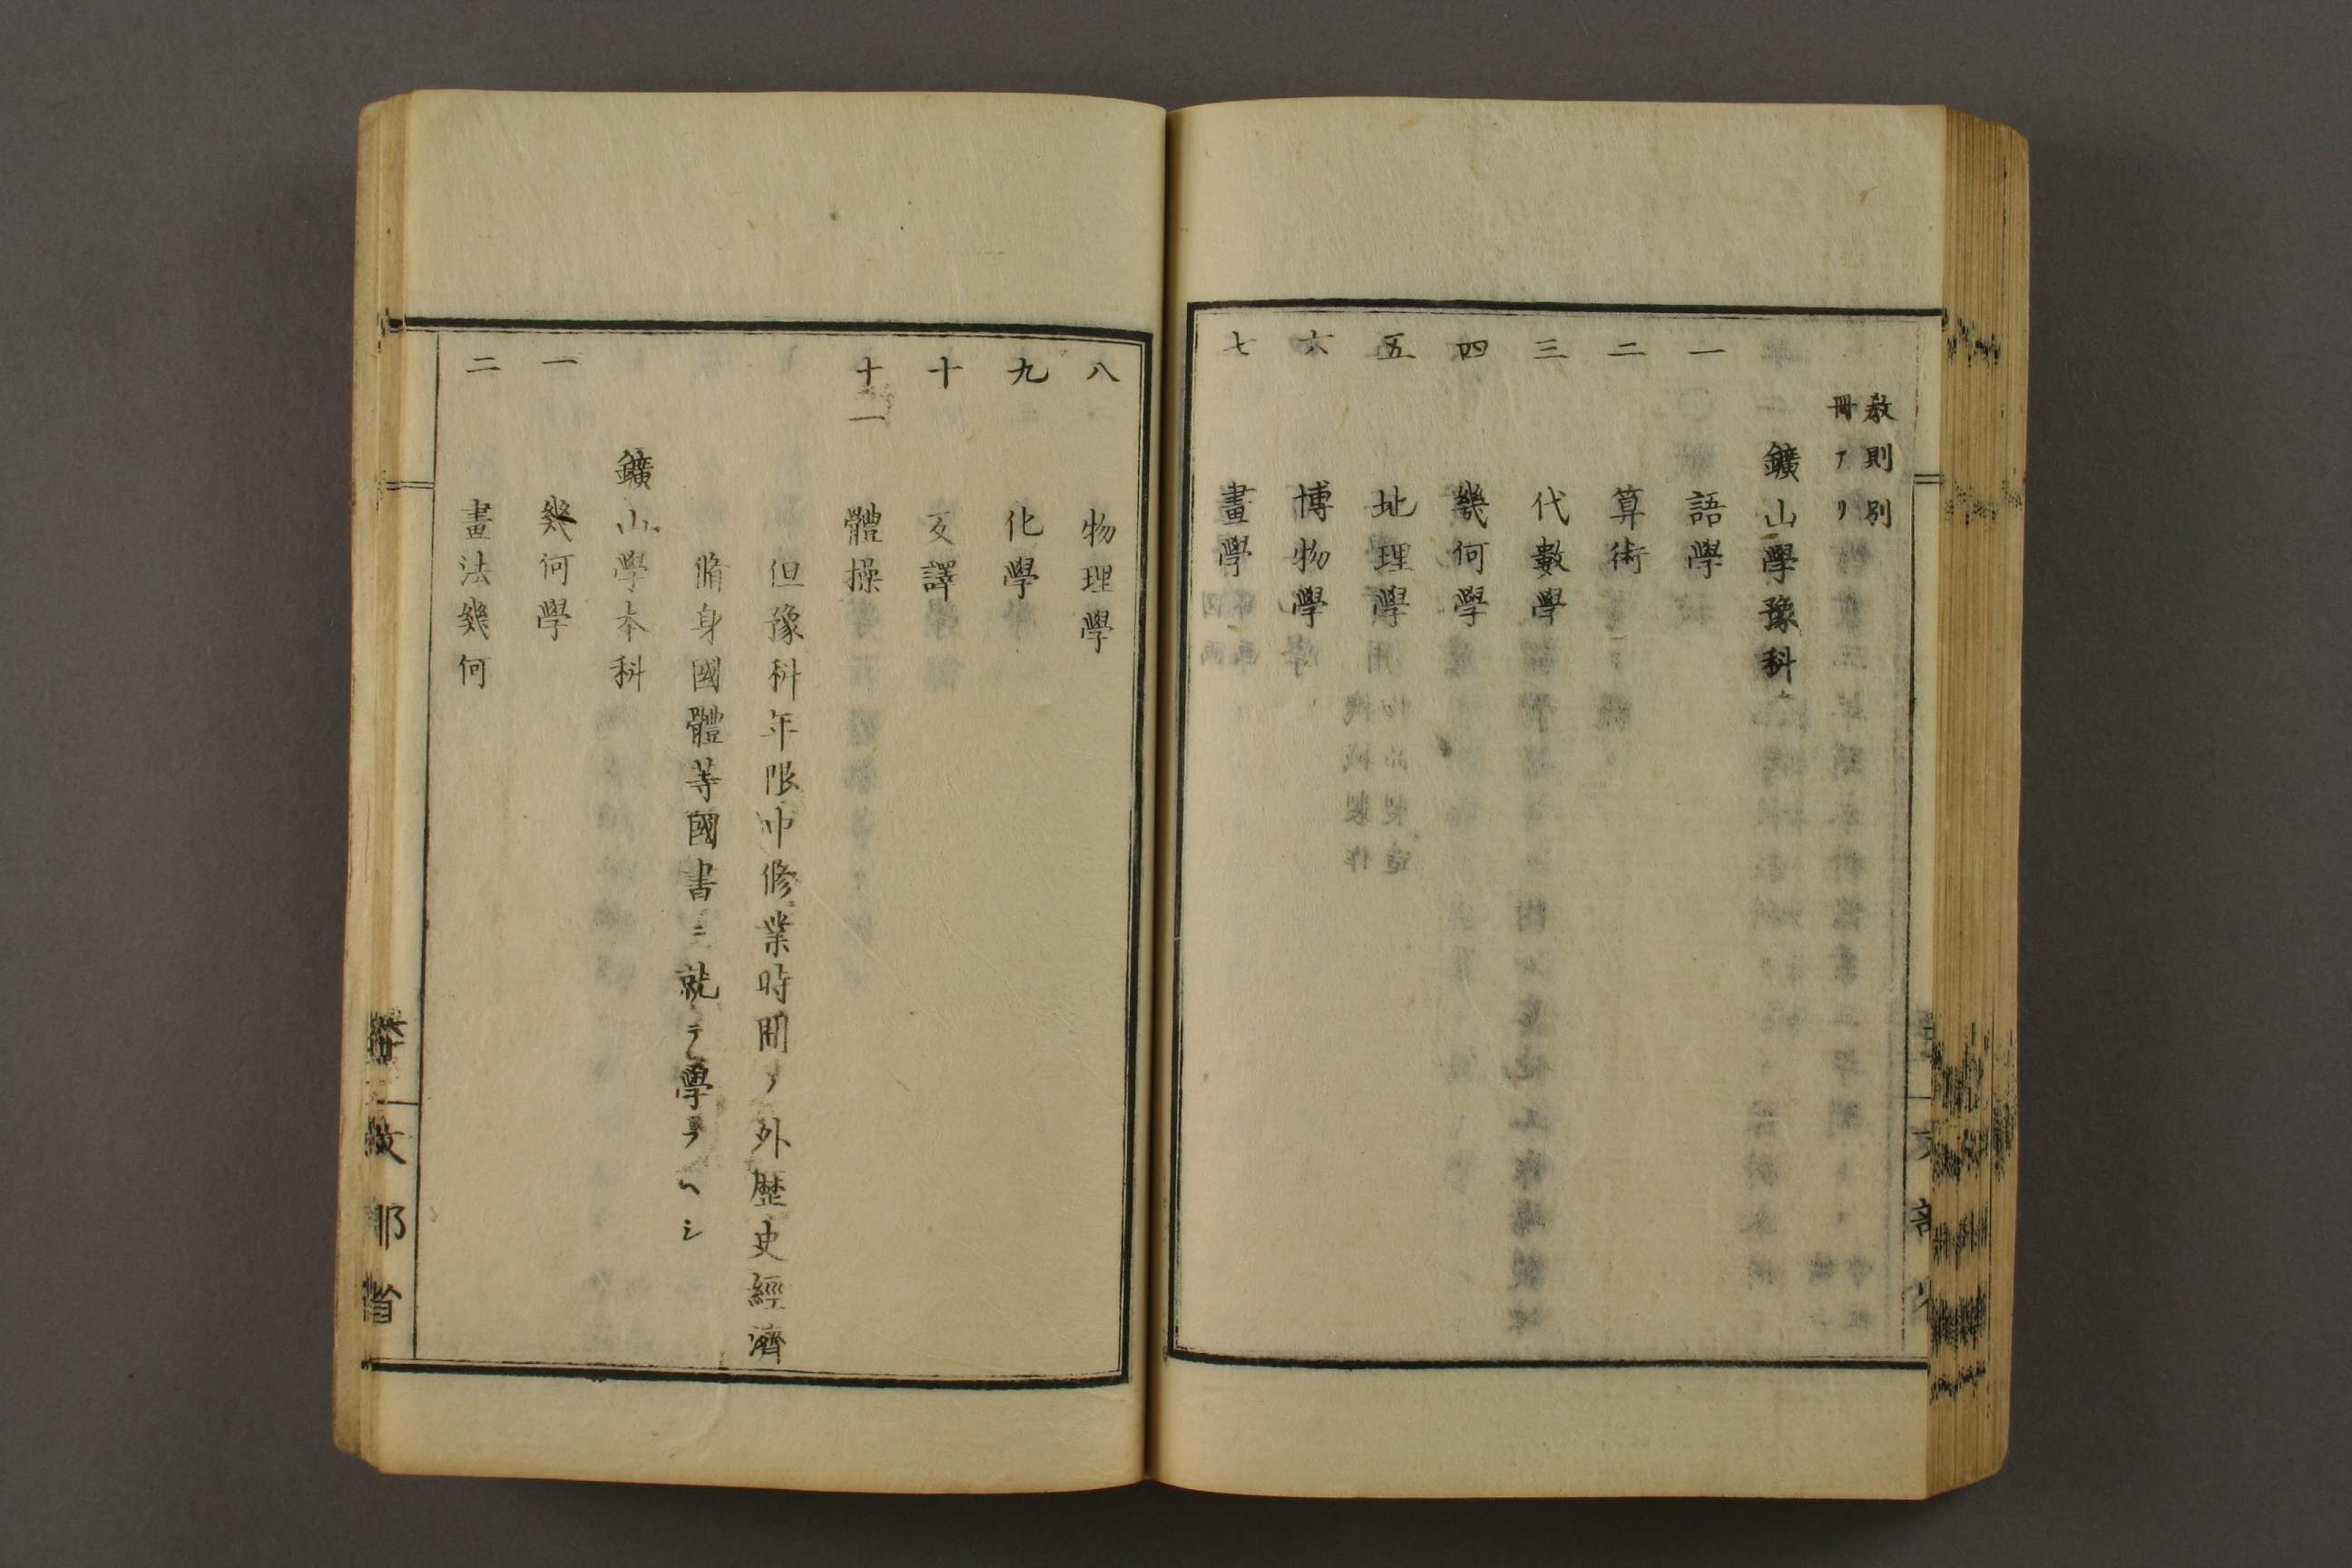 教則別
冊アリ
鑛山學豫科
一 語學
二 算術
三 代數學
四 幾何學
五 地理學
六 博物學
七 畫學
八 物理學
九 化學
十 反譯
十一 體操
但豫科年限中修業時間ノ外歷史經濟
脩身國體等國書ニ就テ學フヘシ
鑛山學本科
一 幾何學
二 畫法幾何
文部省